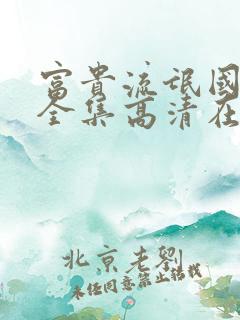 富貴流氓國
全集高清在
北京老劉
未经同意禁止转载